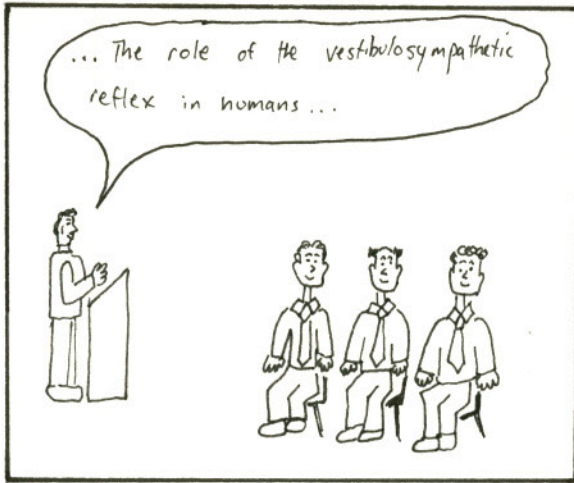 ... The role of the vestibulosympathetic
reflex in humans...